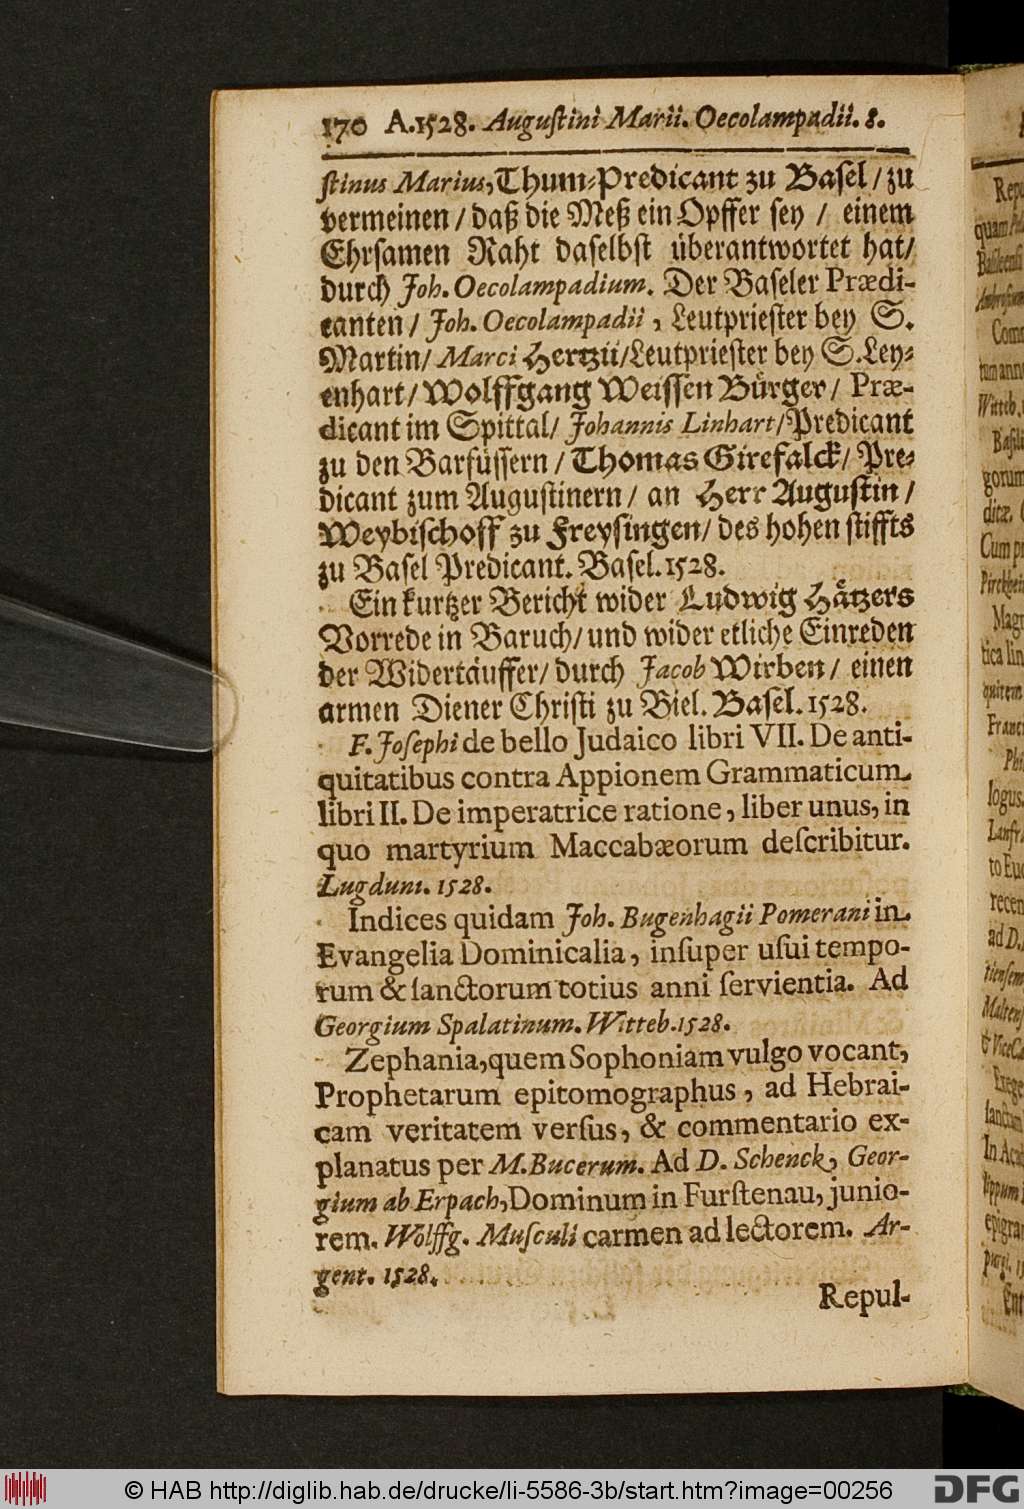 170 A.1528. Auguſtini Marii. Oecolampadii. 8.
ſtinus Marius, Thum-Predicant zu Baſel / zu
vermeinen / daß die Meß ein Opffer ſey / einem
Ehrſamen Raht daſelbſt überantwortet hat/
durch Joh. Oecolampadium. Der Baſeler Prædi-
canten / Joh. Oecolampadii, Leutprieſter bey S.
Martin/ Marci Hertzii/Leutprieſter bey S. Ley-
enhart/ Wolffgang Weiſſen Bürger/ Præ-
dicant im Spittal/ Johannis Linhart/Predicant
zu den Barfüſſern / Thomas Girefalck/ Pre-
dicant zum Auguſtinern/ an Herr Auguſtin /
Weybiſchoff zu Freyſingen/ des hohen ſtiffts
zu Baſel Predicant. Baſel. 1528.
Ein kurtzer Bericht wider Ludwig Hätzers
Vorrede in Baruch/ und wider etliche Einreden
der Widertäuffer/ durch Jacob Wirben/ einen
armen Diener Chriſti zu Biel. Baſel. 1528.
F. Joſephi de bello Judaico libri VII. De anti-
quitatibus contra Appionem Grammaticum
libri II. De imperatrice ratione, liber unus, in
quo martyrium Maccabæorum deſcribitur.
Lugduni. 1528.
Indices quidam Joh. Bugenhagii Pomerani in
Evangelia Dominicalia, inſuper uſui tempo-
rum & ſanctorum totius anni ſervientia. Ad
Georgium Spalatinum. Witteb. 1528.
Zephania, quem Sophoniam vulgo vocant,
Prophetarum epitomographus, ad Hebrai-
cam veritatem verſus, & commentario ex-
planatus per M. Bucerum. Ad D. Schenck, Geor-
gium ab Erpach, Dominum in Furſtenau, junio-
rem. Wolffg. Muſculi carmen ad lectorem. Ar-
gent. 1528.
Repul-
© HAB http://diglib.hab.de/drucke/li-5586-3b/start.htm?image=00256
DFG